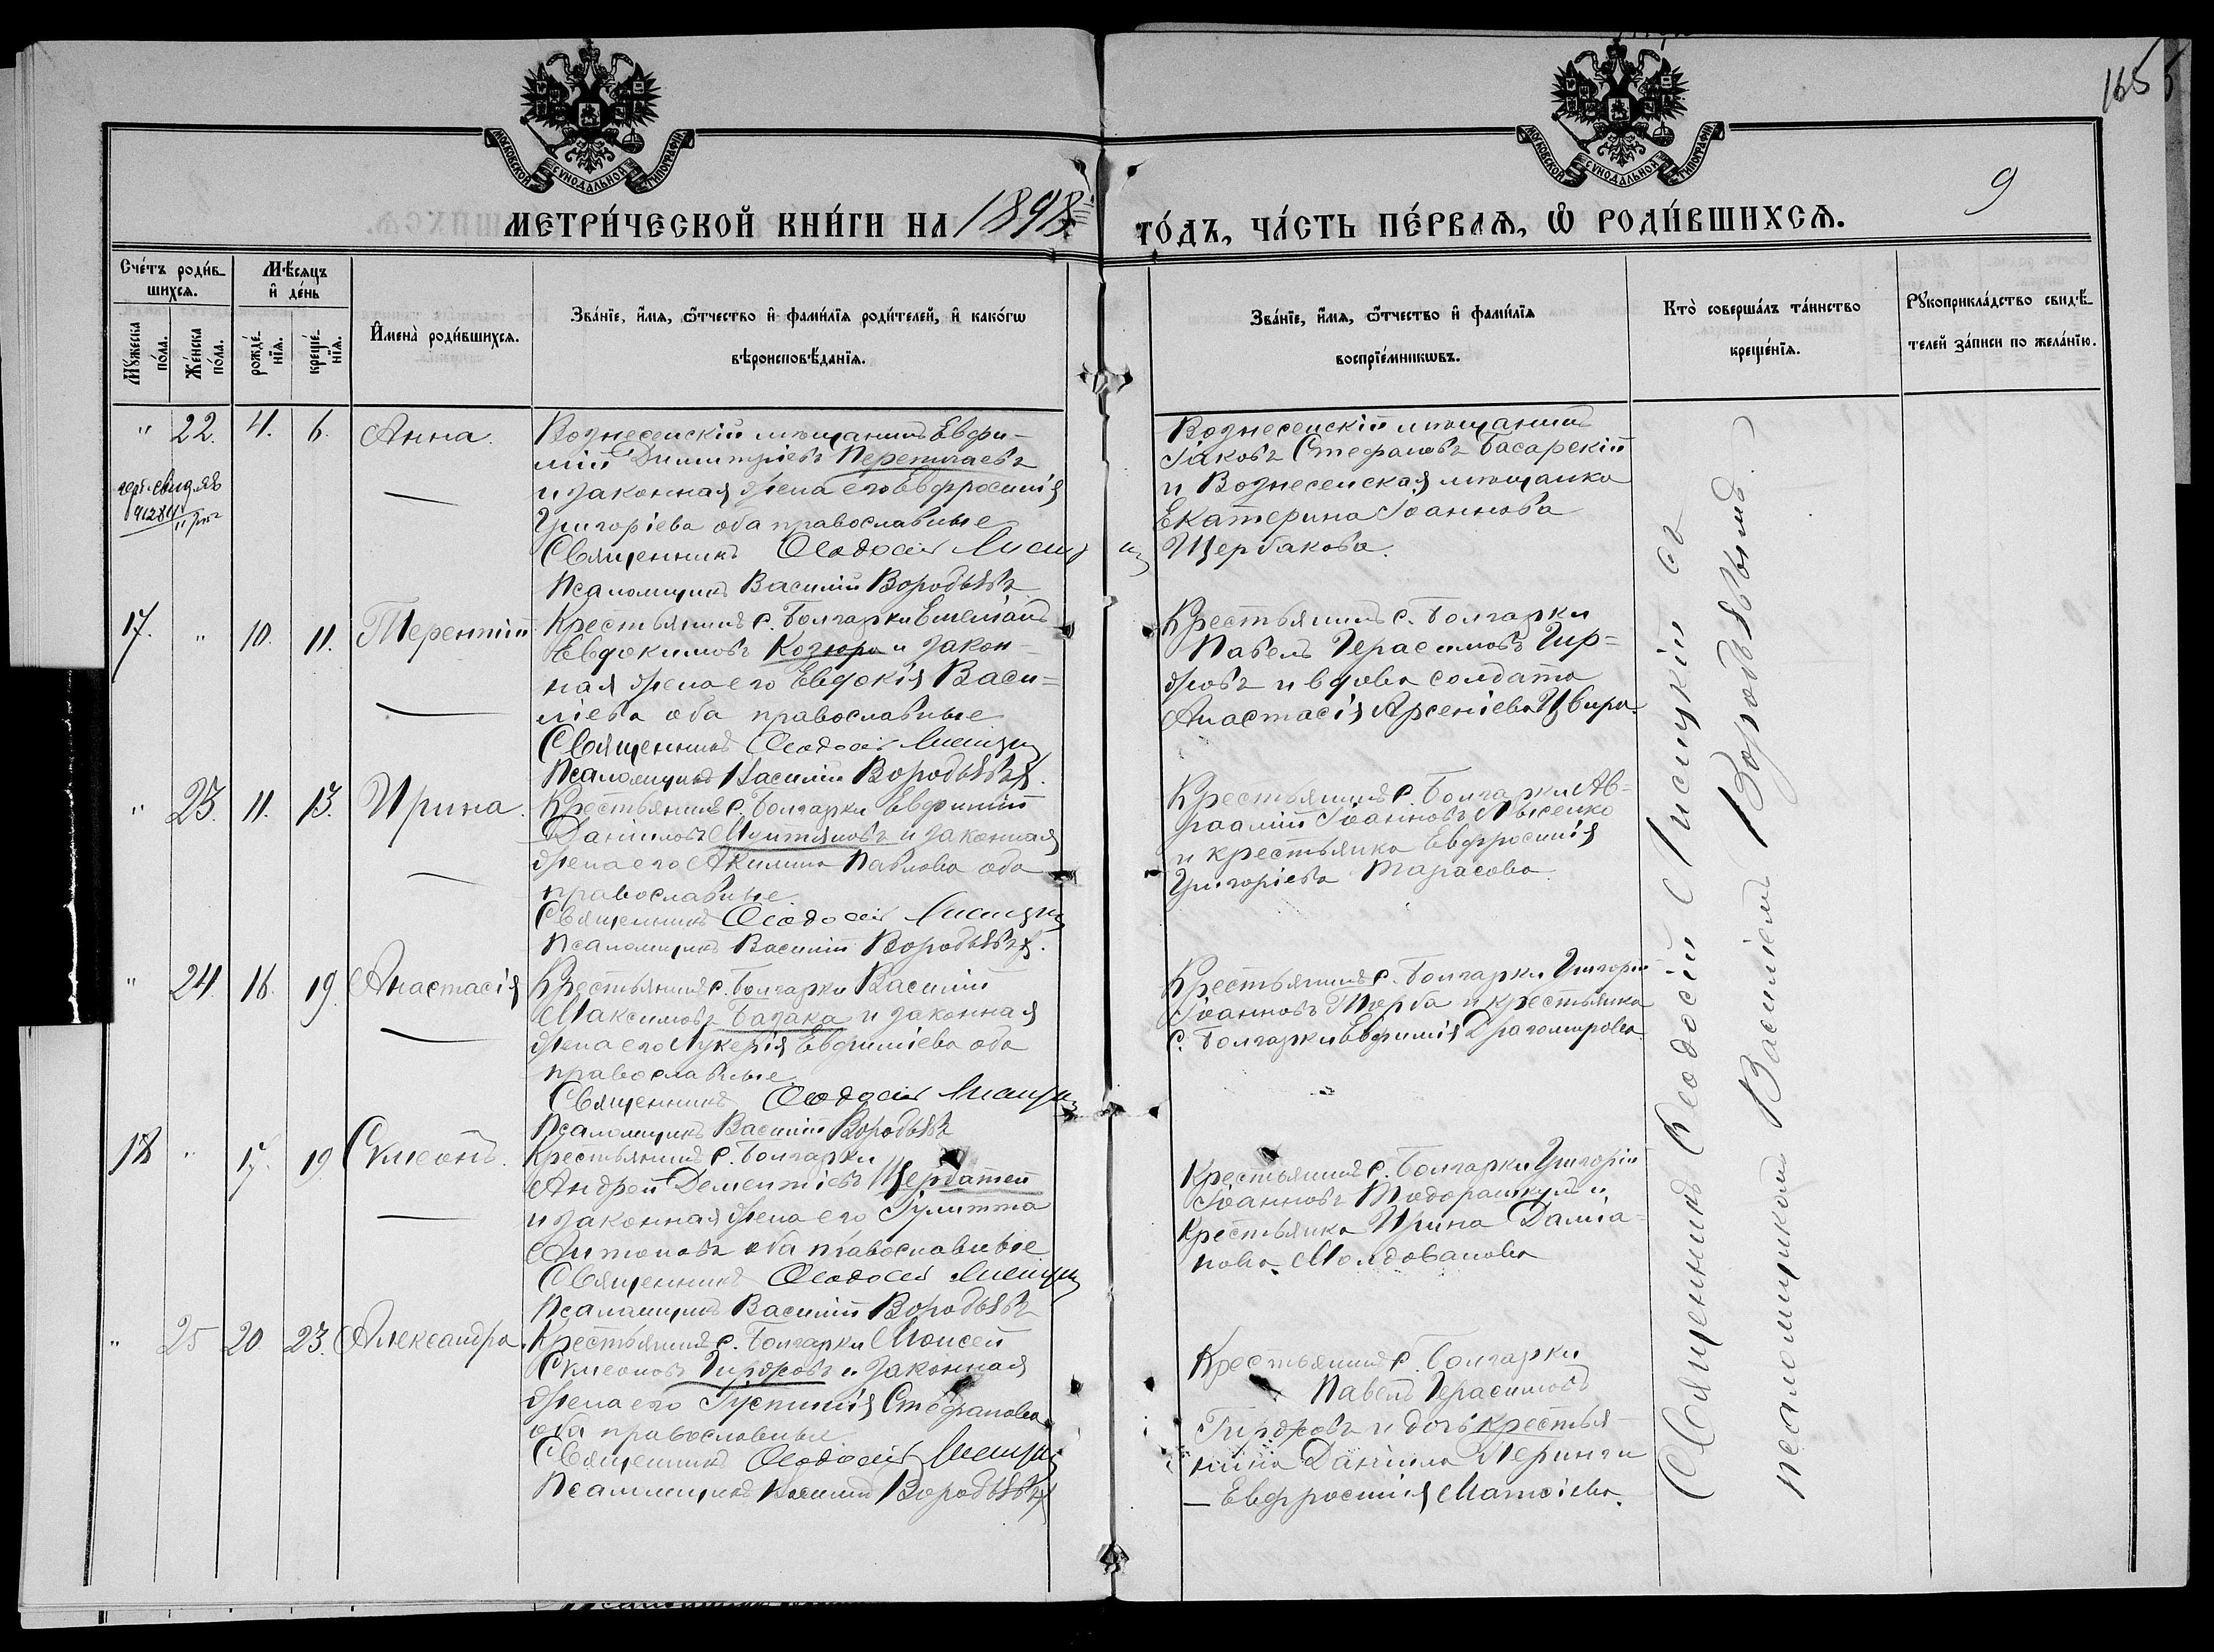 165
9
МОСКОВСКОЙ СѴНОДАЛЬНОЙ ТИПОГРАФІИ
МОСКОВСКОЙ СѴНОДАЛЬНОЙ ТИПОГРАФІИ
МЕТРИ́ЧЕСКОЙ КНИ́ГИ НА 1898
ГО́ДЪ, ЧА́СТЬ ПЕ́РВАѦ, Ѽ РОДИ́ВШИХСѦ.
Сче́тъ роди́в-
шихсѧ.
Мѣ́сѧцъ
и҆ де́нь
Мꙋ́жеска
по́ла.
Же́нска
по́ла.
рожде́-
нїѧ.
креще́-
нїѧ.
И҆мена̀ роди́вшихсѧ.
Зва́нїе, и҆́мѧ, ѻ҆́тчество и҆ фами́лїѧ роди́телей, и҆ како́гѡ
вѣроисповѣ́данїѧ.
Зва́нїе, и҆́мѧ, ѻ҆́тчество и҆ фами́лїѧ
воспрїе́мникѡвъ.
Кто̀ соверша́лъ та́инство
креще́нїѧ.
Рꙋкоприкла́дство свидѣ́-
телей за́писи по жела́нїю.
" 22. 4. 6. Анна.
Вознесенскій мѣщанинъ Евфи-
мій Димитріевъ
и законная жена его Евфросинія
Григоріева оба православные
Священникъ Ѳеодосій Лисицкій
Псаломщикъ Василій Воробьевъ
Вознесенскій мѣщанинъ
Іаковъ Стефановъ Басарскій
и Вознесенская мѣщанка
Екатерина Іоаннова
Щербакова.
17. " 10. 11. Терентій
Крестьянинъ с. Болгарки Емеліанъ
Евдокимовъ Козюра и закон-
ная жена его Евдокія Васи-
ліева оба православные
Священникъ Ѳеодосій Лисицкій
Псаломщикъ Василій Воробьевъ
Крестьянинъ с. Болгарки
Павелъ Герасимовъ Гир-
жовъ и вдова солдата
Анастасія Арсеніева Цвира.
" 23. 11. 13. Ирина.
Крестьянинъ с. Болгарки Евфимій
Даніиловъ и законная
жена его Акилина Павлова оба
православные.
Священникъ Ѳеодосій Лисицкій
Псаломщикъ Василій Воробьевъ.
Крестьянинъ с. Болгарки Ав-
раамій Іоанновъ Лысенко
и крестьянка Евфросинія
Григоріева Тарасова.
" 24. 16. 19. Анастасія
Крестьянинъ с. Болгарки Василій
Максимовъ Базака и законная
жена его Лукерія Евфиміева оба
православные.
Священникъ Ѳеодосій Лисицкій
Псаломщикъ Василій Воробьевъ
Крестьянинъ с. Болгарки Григорій
Іоанновъ и крестьянка
с. Болгарки Евфимія Драгомирова
18 " 17. 19 Сѵмеонъ.
Крестьянинъ с. Болгарки
Андрей Дементіевъ Щербатей
и законная жена его Іулитта
Антонова оба православные
Священникъ Ѳеодосій Лисицкій
Псаломщикъ Василій Воробьевъ
Крестьянинъ с. Болгарки Григорій
Іоанновъ и
крестьянка Ирина Даміа-
нова Молдованова
" 25 20 23. Александра.
Крестьянинъ с. Болгарки Моисей
Сѵмеоновъ Гиржовъ и законная
жена его Іустинія Стефанова
оба православные
Священникъ Ѳеодосій Лисицкій
Псаломщикъ Василій Воробьевъ
Крестьянинъ с. Болгарки
Павелъ Герасимовъ
Гиржовъ и дочь крестья-
нина Даніила
— Евфросинія
Священникъ Ѳеодосій Лисицкій съ
псаломщикомъ Василіемъ Воробьевымъ.